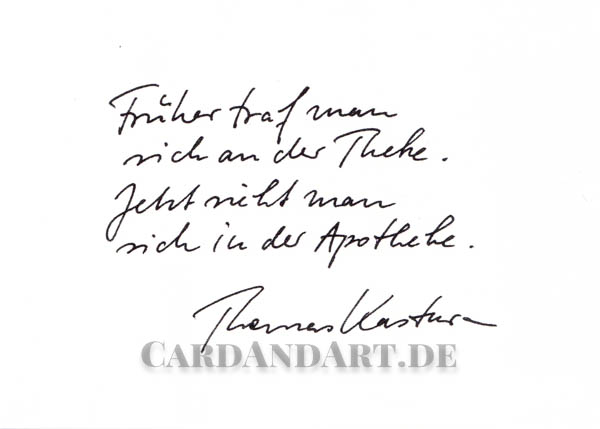 Früher traf man
sich an der Theke.
Jetzt sieht man
sich in der Apotheke.
Thomas Kastura
CARDANDART.DE